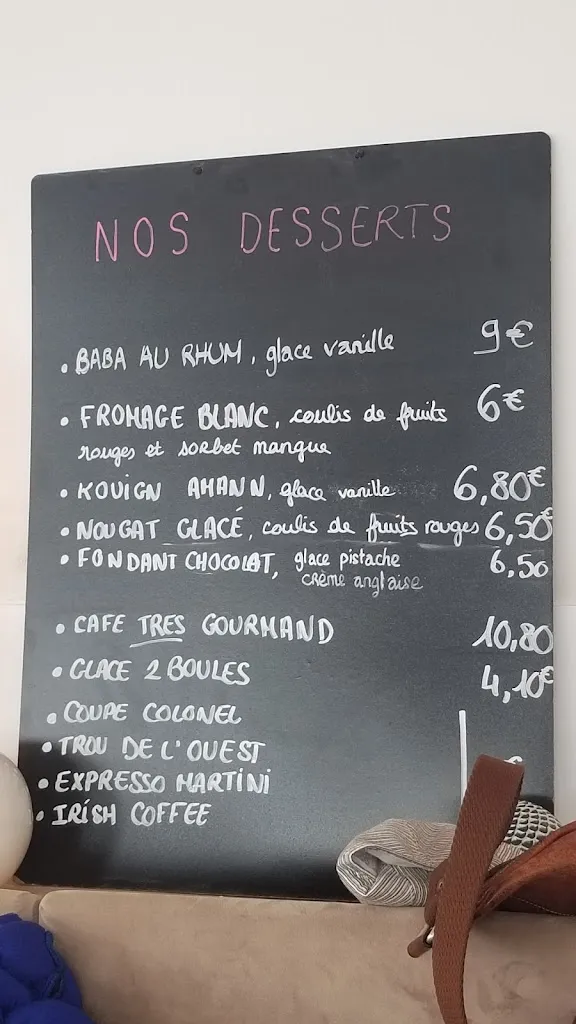 NOS DESSERTS
• BABA AU RHUM, glace vanille 9€
• FROMAGE BLANC, coulis de fruits 6€
rouges et sorbet mangue
• KOUIGN AMANN, glace vanille 6,80€
• NOUGAT GLACÉ, coulis de fruits rouges 6,50€
• FONDANT CHOCOLAT, glace pistache 6,50
crème anglaise
• CAFE TRES GOURMAND 10,80
• GLACE 2 BOULES 4,10€
• COUPE COLONEL
• TROU DE L'OUEST
• EXPRESSO MARTINI
• IRISH COFFEE